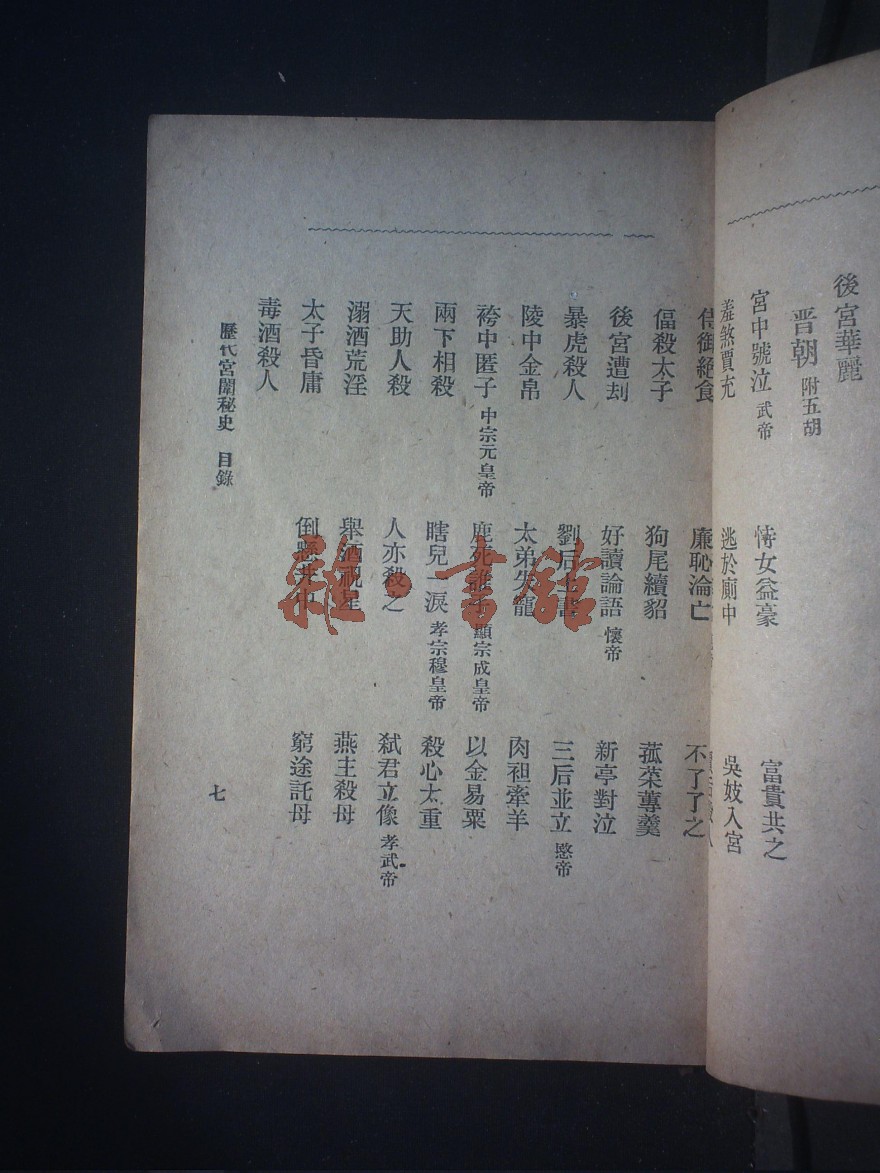 後宮華麗
晋朝 附五胡
宮中號泣 武帝
恃女益豪
富貴共之
羞煞賈充
逃於廁中
吳妓入宮
侍御絕食
廉恥淪亡
不了了之
偪殺太子
狗尾續貂
菰菜蓴羹
後宮遭刦
好讀論語 懷帝
新亭對泣
暴虎殺人
劉后上書
三后並立 愍帝
陵中金帛
太弟失寵
肉袒牽羊
袴中匿子 中宗元皇帝
鹿死誰手 顯宗成皇帝
以金易粟
兩下相殺
瞎兒一淚 孝宗穆皇帝
殺心太重
天助人殺
人亦殺之
弑君立像 孝武帝
溺酒荒淫
舉酒祝星
燕主殺母
太子昏庸
倒懸井中
窮途託母
毒酒殺人
歷代宮闈秘史 目錄
七
雜·書館